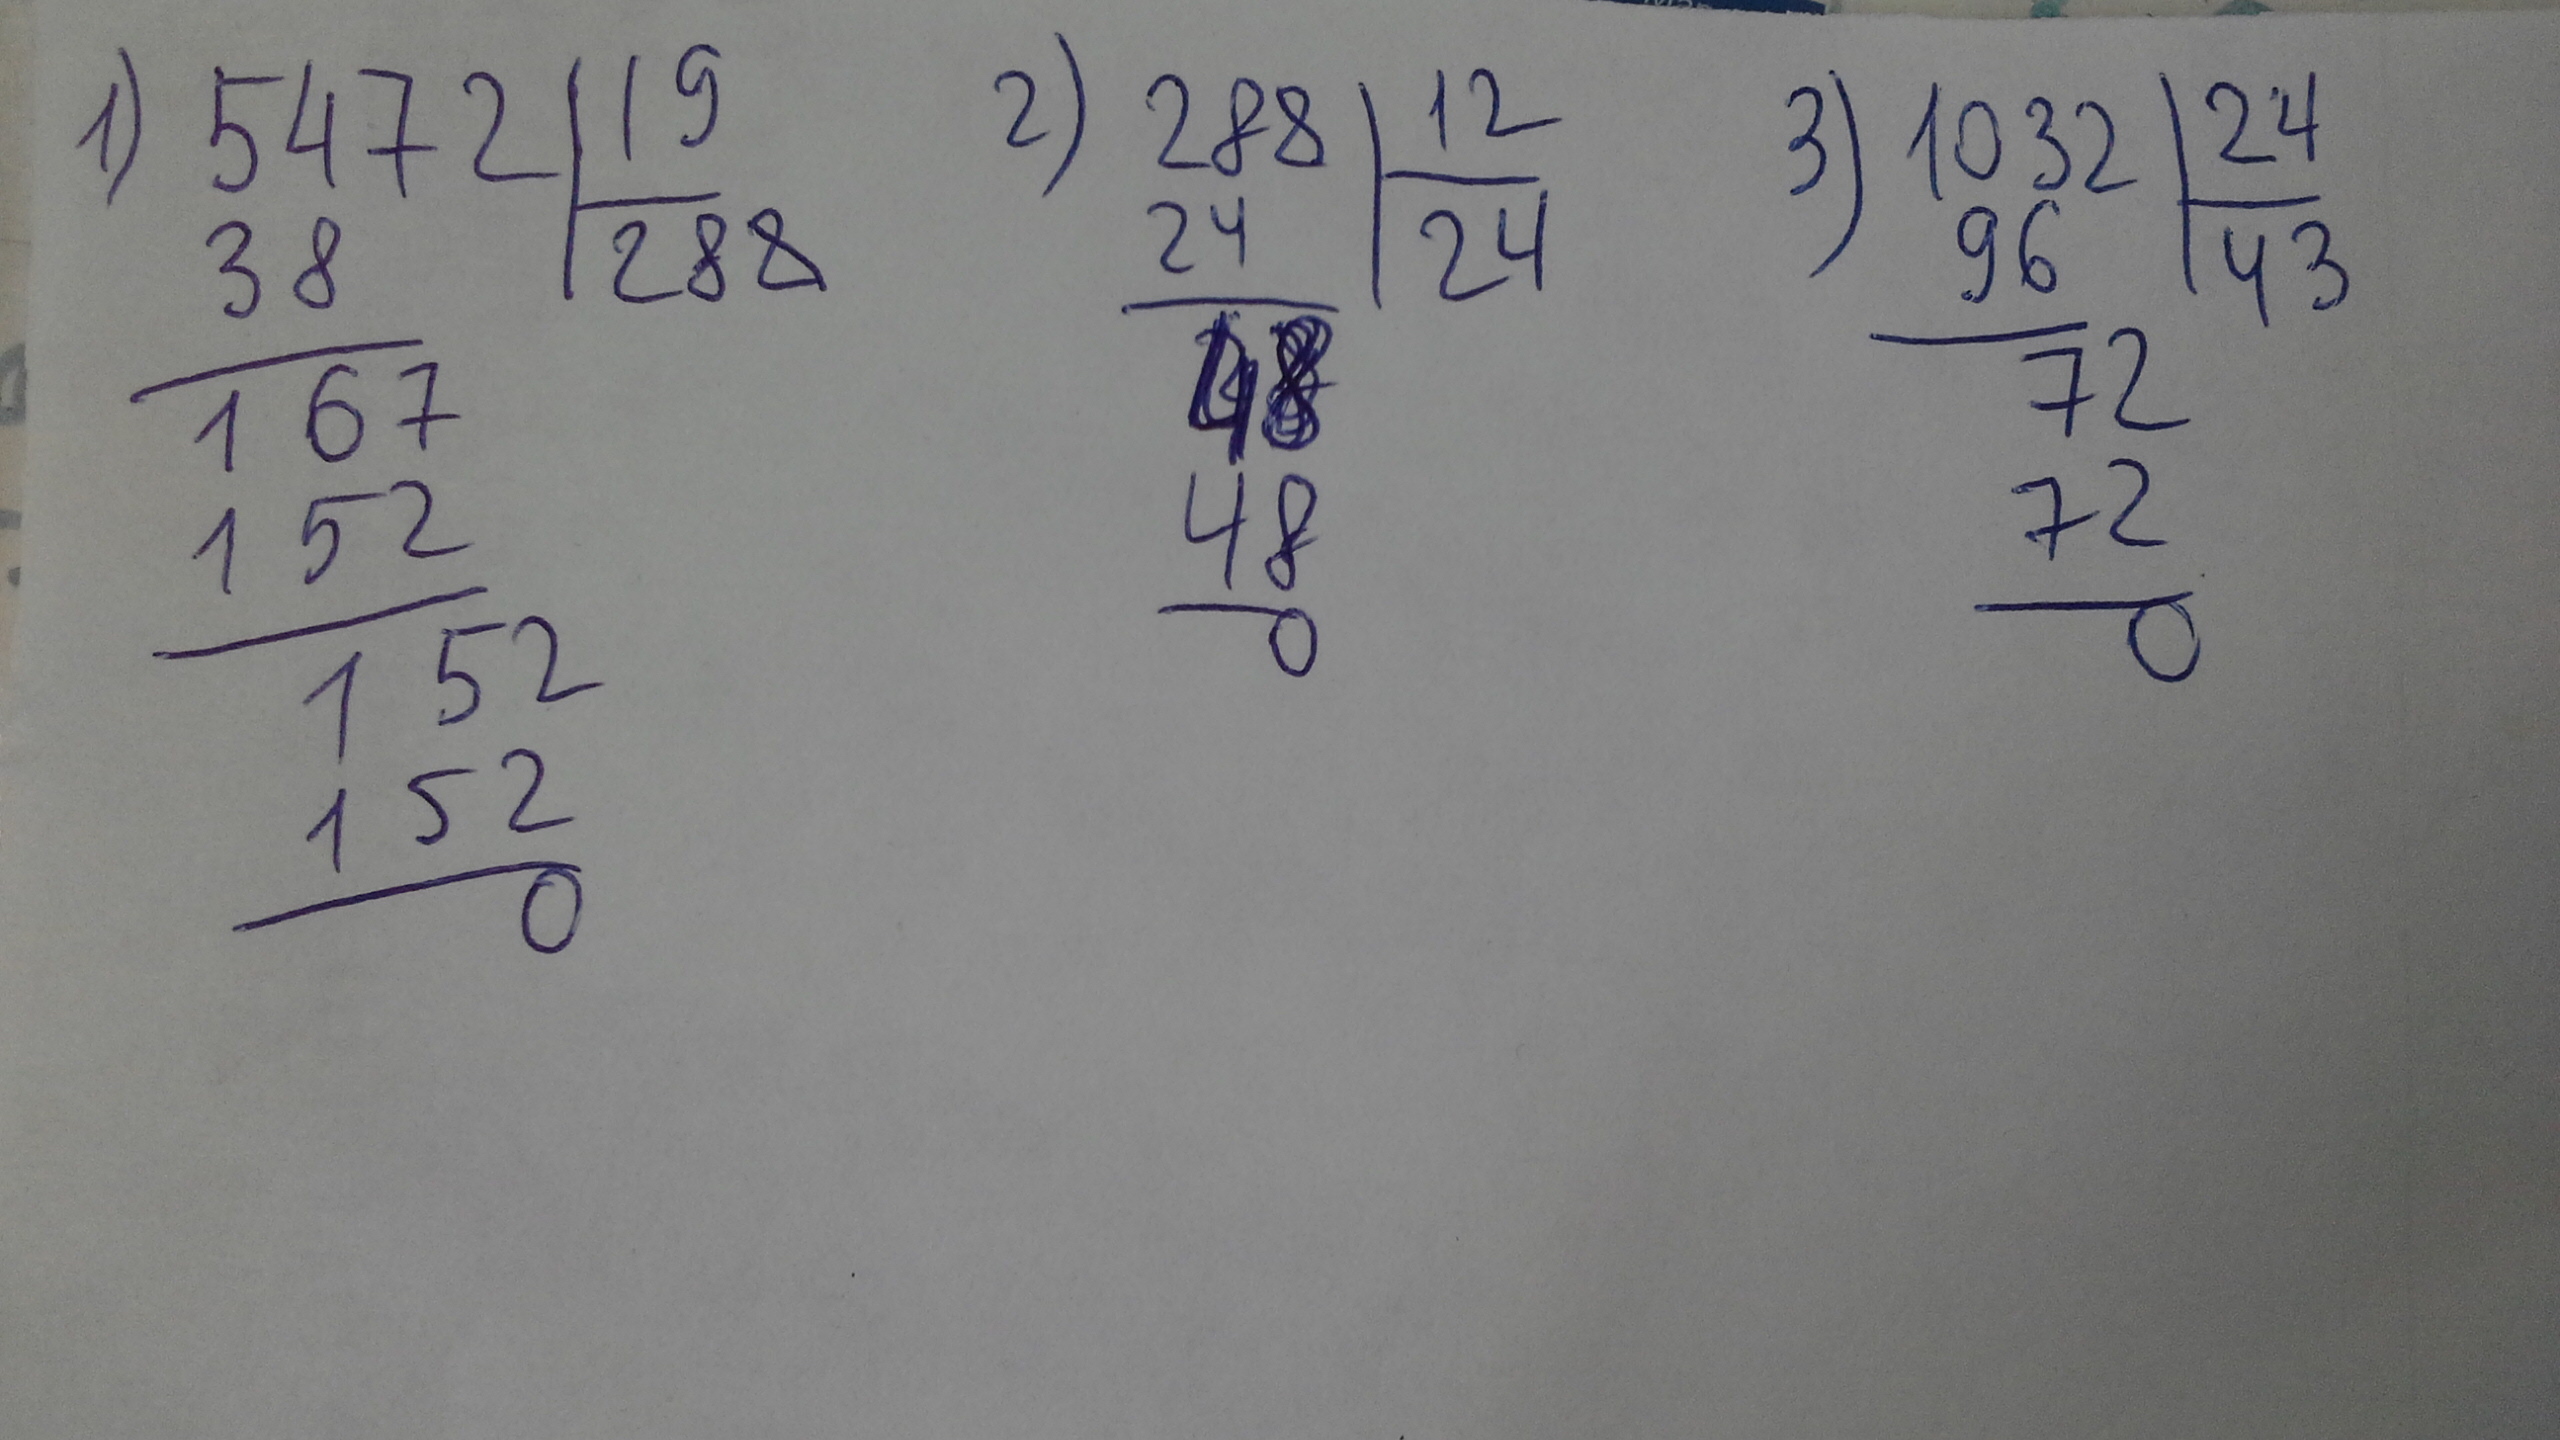 1) 5472 | 19
38 | 288
167
152
152
152
0
2) 288 | 12
24 | 24
48
48
0
3) 1032 | 24
96 | 43
72
72
0